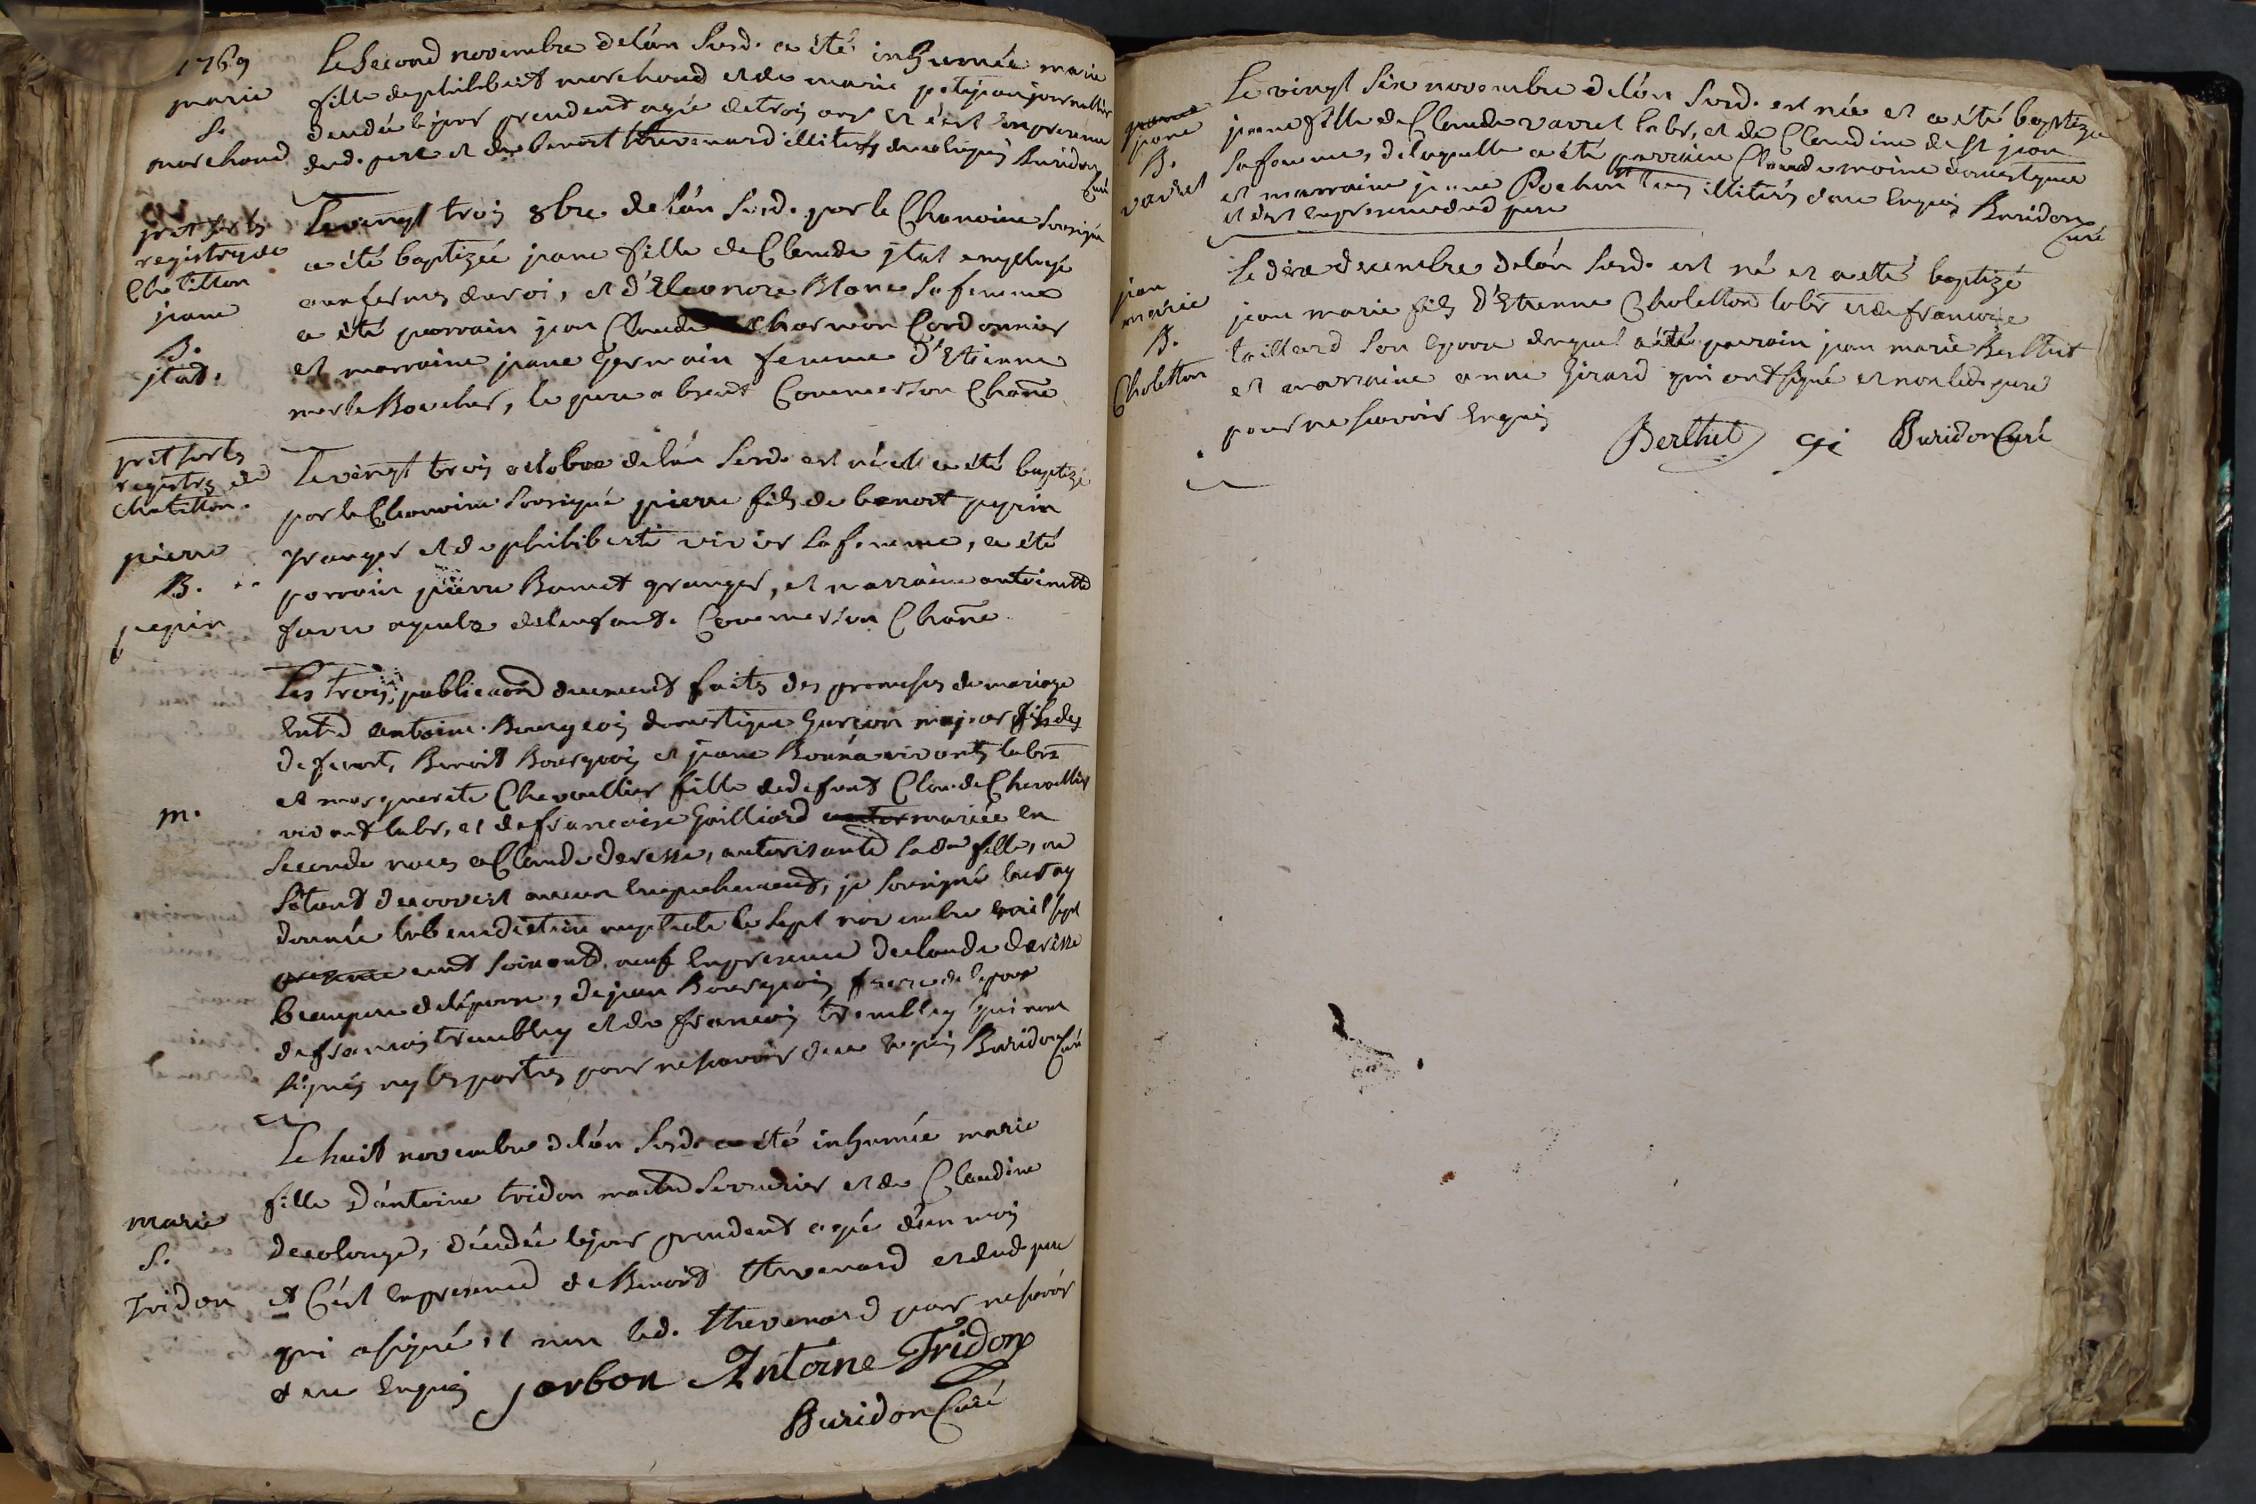 1769
marie
S.
marchand
Le second novembre de l'an susd. a été inhumée marie
fille de philibert marchand et de marie petitjean journallier
decedée le jour precedent agée de trois ans et c'est en presence
dud. pere et de benoit thevenard illiterés de ce enquis Buridon
Curé
registres de
Chatillon
jeane
B.
jtat.
Le vingt trois 8bre de l'an susd. par le Chanoine sousigné
a été baptizée jeane fille de Claude jtat employé
aux fermes du roi, et d'Eleonore Blanc sa femme
a été parrain jean Claude Charmon Cordonnier
et marraine jeane Germain femme d'Etienne
merle Boucher, le pere absent Commerson Chane
registres de
chatillon.
pierre
B.
pepin
Le vingt trois octobre de l'an susd. est né et a été baptizé
par le Chanoine sousigné pierre fils de benoit pepin
granger et de philiberte vivier sa femme, a été
parrain pierre Bonnet granger, et marraine antoinette
favre ayeule de l'enfant. Commerson Chane
m.
Les trois publica͠ons duement faites des promesses de mariage
entre antoine Bourgeois domestique garçon majeur fils des
defunts Benoit Bourgeois et jeane Bonna vivants labrs
et marguerite Chevallier fille de defunt Claude Chevallier
vivant labr, et de francoise Gailliard mariée en
seconde noces a Claude deresse, autorisante lade fille, ne
s'étant decouvert aucun empechement, je sousigné leur ay
donnée la benediction nuptiale le sept novembre mil sept
cent soixante neuf en presence de Claude deresse
beaupere de l'épouse, de jean Bourgeois frere de l'epoux
de francois trembley et de francois trembley qui n'ont
signés ny les parties pour ne scavoir de ce enquis Buridon Curé
marie
S.
Tridon
Le huit novembre de l'an susd. a été inhumée marie
fille d'antoine tridon maitre serrurier et de Claudine
decolonge, décédée le jour precedent agée d'un mois
et C'est en presence de Benoit thevenard et dud. pere
qui a signé et non led. thevenard pour ne scavoir
de ce enquis jorbon Antoine Tridon
Buridon Curé
jeane
B.
vavret
Le vingt six novembre de l'an susd. est née et a été baptizée
jeane fille de Claude vavret labr, et de Claudine de st jean
sa femme, de laquelle a été parrain Claude moine domestique
et marraine jeane Pochon tous illiterés de ce enquis Buridon
et c'est en presence dud pere
Curé
jean
marie
B.
Choletton
Le dix decembre de l'an susd. est né et a eté baptizé
jean marie fils d'Etienne Choletton labr et de francoise
taillard son epouse duquel a été parrain jean marie Berthet
et marraine anne Girard qui ont signé et non led. pere
pour ne scavoir enquis
Berthet gi Buridon Curé